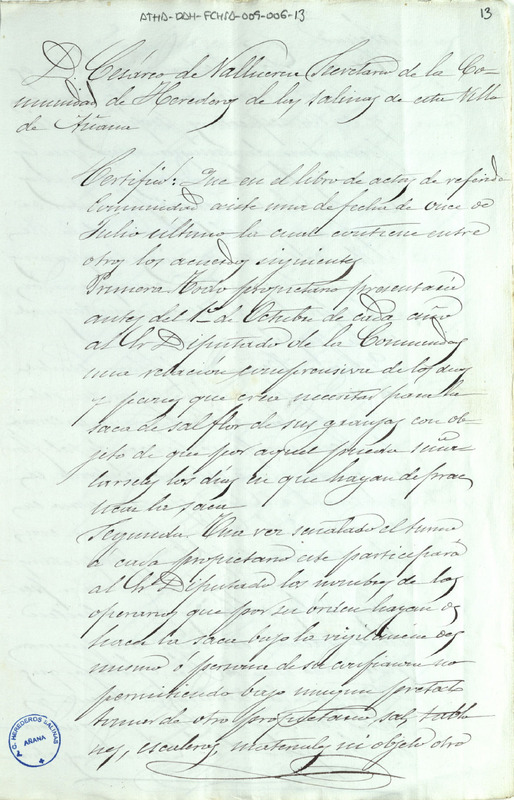 ATHA-DAH-FCHSA-009-006-13
13
D. Cesáreo de Valluerca Secretario de la Co-
munidad de Herederos de las salinas de esta Villa
de Añana
Certifico: Que en el libro de actas de referida
Comunidad existe una de fecha de once de
Julio ultimo la cual contiene entre
otros los acuerdos siguientes
Primera. Todo propietario presentará
antes del 1º de Octubre de cada año
al Sr Diputado de la Comunidad
una relación comprensiva de los dias
y pares que crea necesitar para la
saca de sal flor de sus granjas con ob-
jeto de que por aquel pueda seña-
larseles los días en que hayan de prac-
ticar la saca
Segunda. Una vez señalado el turno
á cada propietario este participará
al Sr Diputado los nombres de los
operarios que por su orden hayan de
hacer la saca bajo la vigilancia del
mismo ó persona de su confianza no
permitiendo bajo ningun pretesto
tomar de otro propietario, sal, tablo
nes, escaleras, materiales ni objeto otro
C. HEREDEROS SALINAS
AÑANA